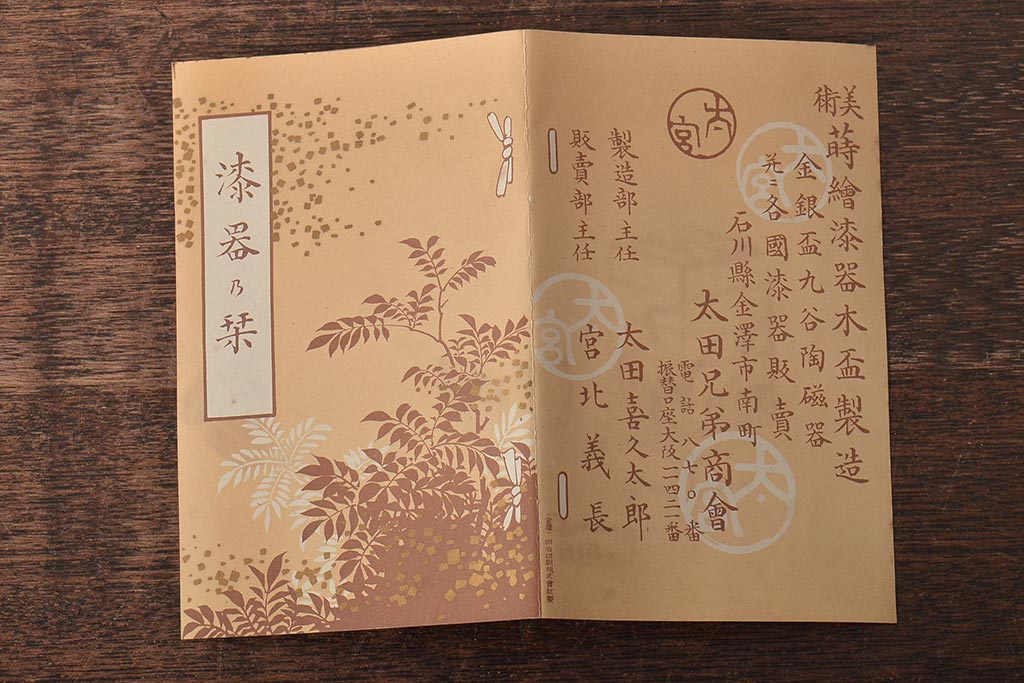 美術 蒔繪漆器木盃製造
金銀盃九谷陶磁器
兼ニ各國漆器販賣
石川縣金澤市南町
太田兄弟商會
電話八七〇番
振替口座大阪二四二一番
製造部主任 太田喜久太郎
販賣部主任 宮北義長
太宮
太宮
太宮
漆器乃栞